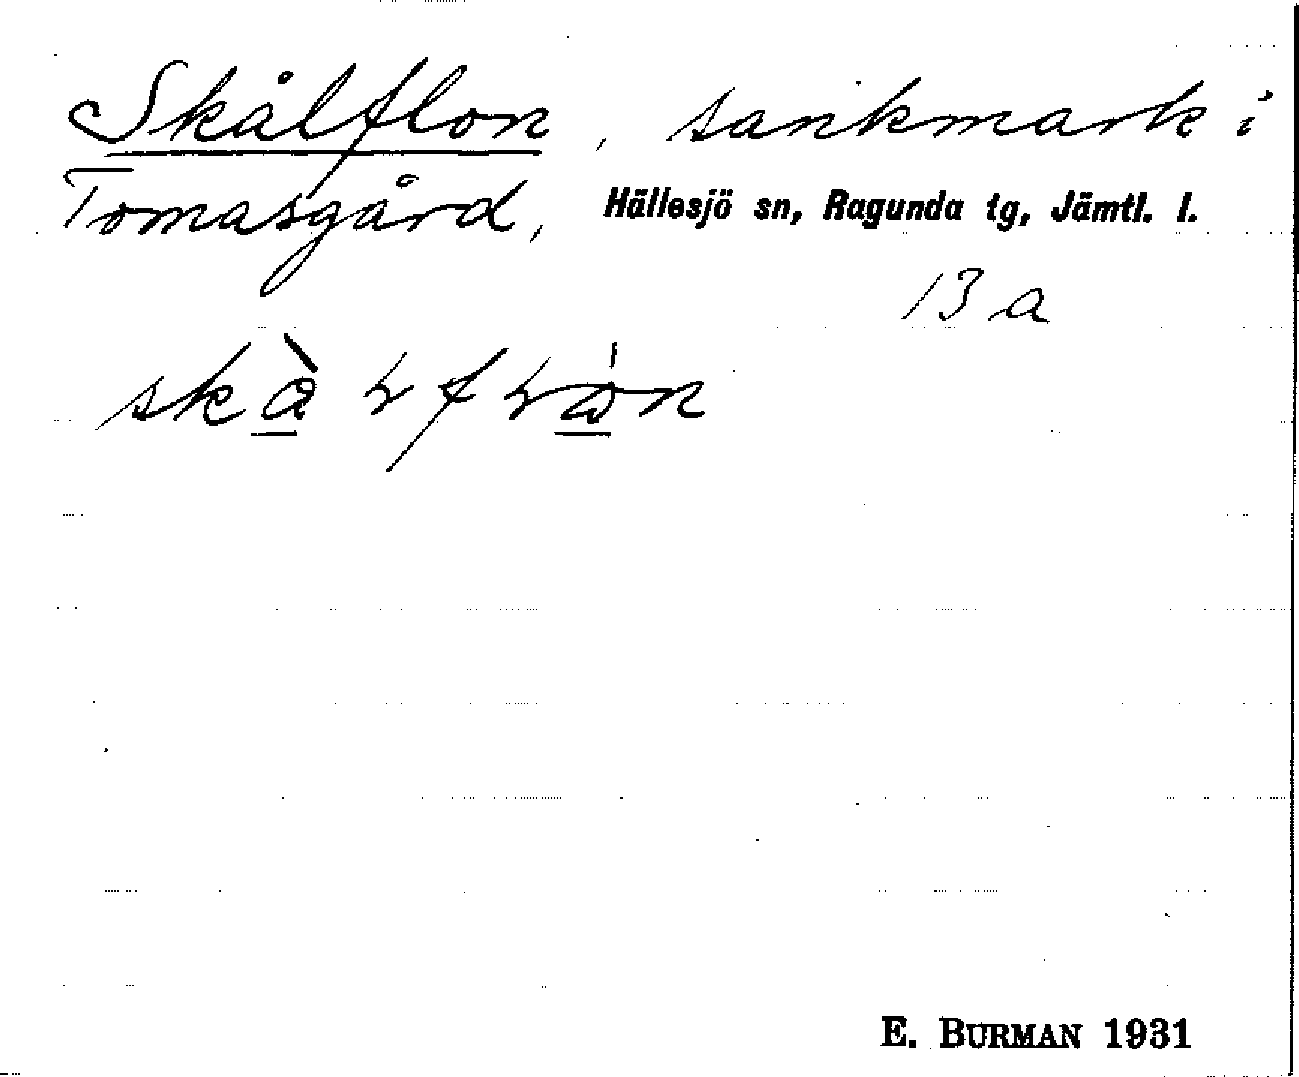 Skålflon, sankmark i
Tomasgård, Hällesjö sn, Ragunda tg, Jämtl. l.
13 a
E. BURMAN 1931